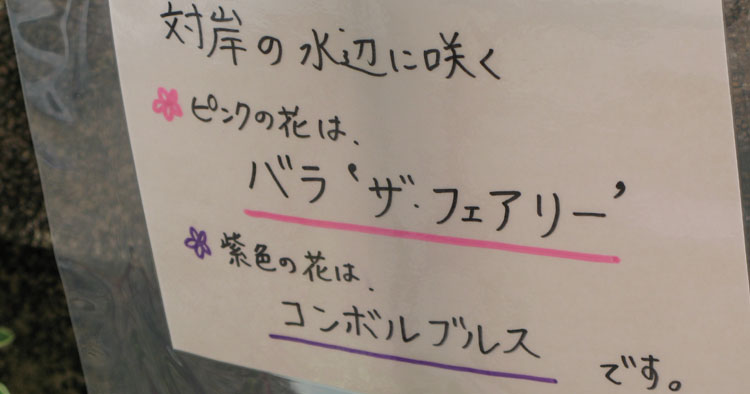 対岸の水辺に咲く
ピンクの花は、
バラ‘ザ・フェアリー’
紫色の花は、
コンボルブルス
です。